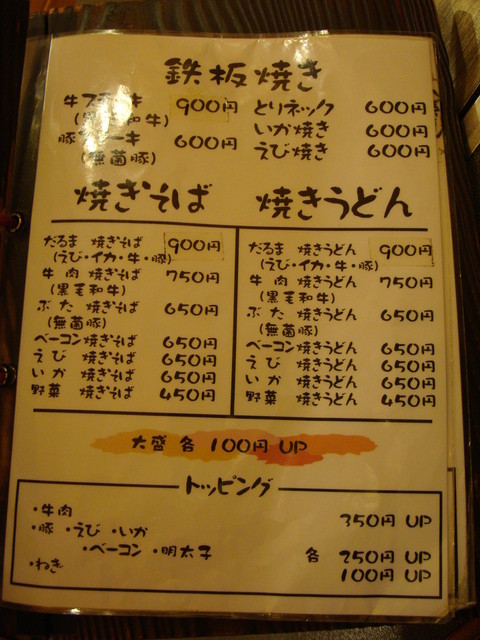 鉄板焼き
牛ステーキ 900円
(黒毛和牛)
豚ステーキ 600円
(無菌豚)
とりネック 600円
いか焼き 600円
えび焼き 600円
焼きそば
だるま 焼きそば 900円
(えび・イカ・牛・豚)
牛肉 焼きそば 750円
(黒毛和牛)
ぶた 焼きそば 650円
(無菌豚)
ベーコン焼きそば 650円
えび 焼きそば 650円
いか 焼きそば 650円
野菜 焼きそば 450円
焼きうどん
だるま 焼きうどん 900円
(えび・イカ・牛・豚)
牛肉 焼きうどん 750円
(黒毛和牛)
ぶた 焼きうどん 650円
(無菌豚)
ベーコン焼きうどん 650円
えび 焼きうどん 650円
いか 焼きうどん 650円
野菜 焼きうどん 450円
大盛 各 100円 UP
トッピング
・牛肉 350円 UP
・豚 ・えび ・いか
・ベーコン ・明太子 各 250円 UP
・ねぎ 100円 UP